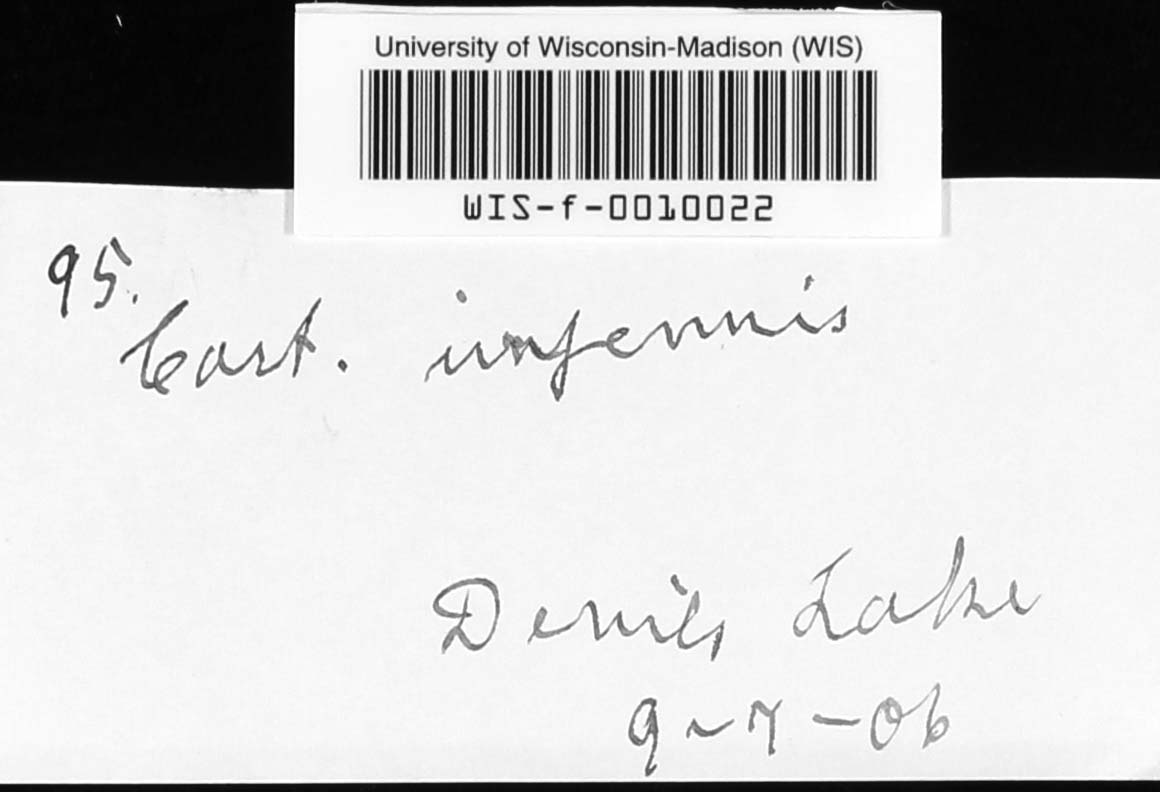 University of Wisconsin-Madison (WIS)
WIS-f-0010022
95.
Cort.
Devils Lake
9-7-06